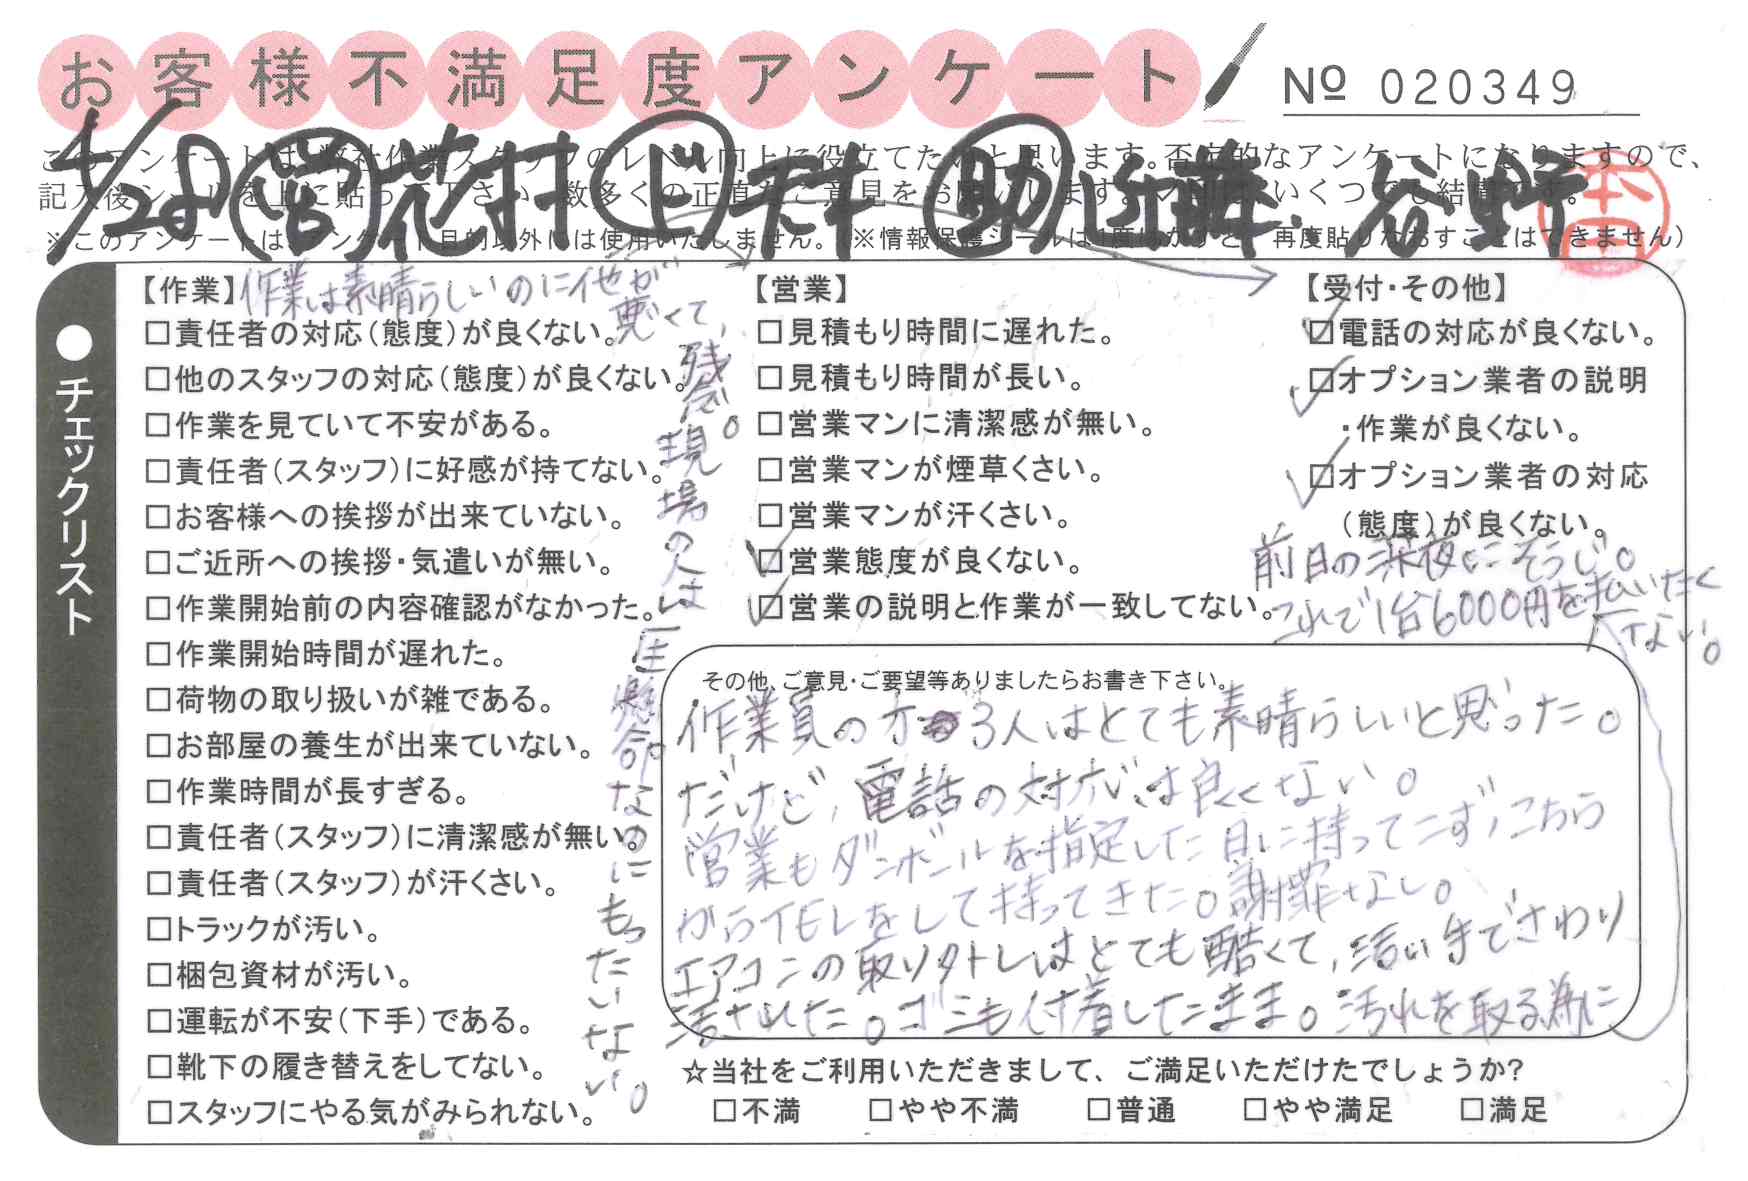 お客様不満足度アンケート
№ 020349
4/28 ㊢花村 ㊤天本 ㊙近藤・谷野
このアンケートは、弊社作業スタッフのレベル向上に役立てたいと思います。否定的なアンケートになりますので、
記入後シールを上に貼って下さい。数多くの正直なご意見をお願いします。
※このアンケートはアンケート目的以外には使用いたしません。(※情報保護シールは1度はがすと、再度貼りなおすことはできません)
●チェックリスト
【作業】
作業は素晴らしいのに他が
悪くて、
残念。
現場の人は
一生懸命なのに
もったいない。
□責任者の対応(態度)が良くない。
□他のスタッフの対応(態度)が良くない。
□作業を見ていて不安がある。
□責任者(スタッフ)に好感が持てない。
□お客様への挨拶が出来ていない。
□ご近所への挨拶・気遣いが無い。
□作業開始前の内容確認がなかった。
□作業開始時間が遅れた。
□荷物の取り扱いが雑である。
□お部屋の養生が出来ていない。
□作業時間が長すぎる。
□責任者(スタッフ)に清潔感が無い。
□責任者(スタッフ)が汗くさい。
□トラックが汚い。
□梱包資材が汚い。
□運転が不安(下手)である。
□靴下の履き替えをしてない。
□スタッフにやる気がみられない。
【営業】
□見積もり時間に遅れた。
□見積もり時間が長い。
□営業マンに清潔感が無い。
□営業マンが煙草くさい。
□営業マンが汗くさい。
☑営業態度が良くない。
☑営業の説明と作業が一致してない。
【受付・その他】
☑電話の対応が良くない。
☑オプション業者の説明
・作業が良くない。
☑オプション業者の対応
(態度)が良くない。
その他、ご意見・ご要望等ありましたらお書き下さい。
作業員の方3人はとても素晴らしいと思った。
だけど、電話の対応は良くない。
営業もダンボールを指定した日に持ってこず、こちら
からイモレをして持ってきた。謝罪なし。
エアコンの取り外しはとても酷くて、汚い手でさわり
汚された。ゴミも付着したまま。汚れを取る為に
前日の深夜にそうじ。
これで1台6000円を払いたく
てない。
☆当社をご利用いただきまして、ご満足いただけたでしょうか?
□不満 □やや不満 □普通 □やや満足 □満足